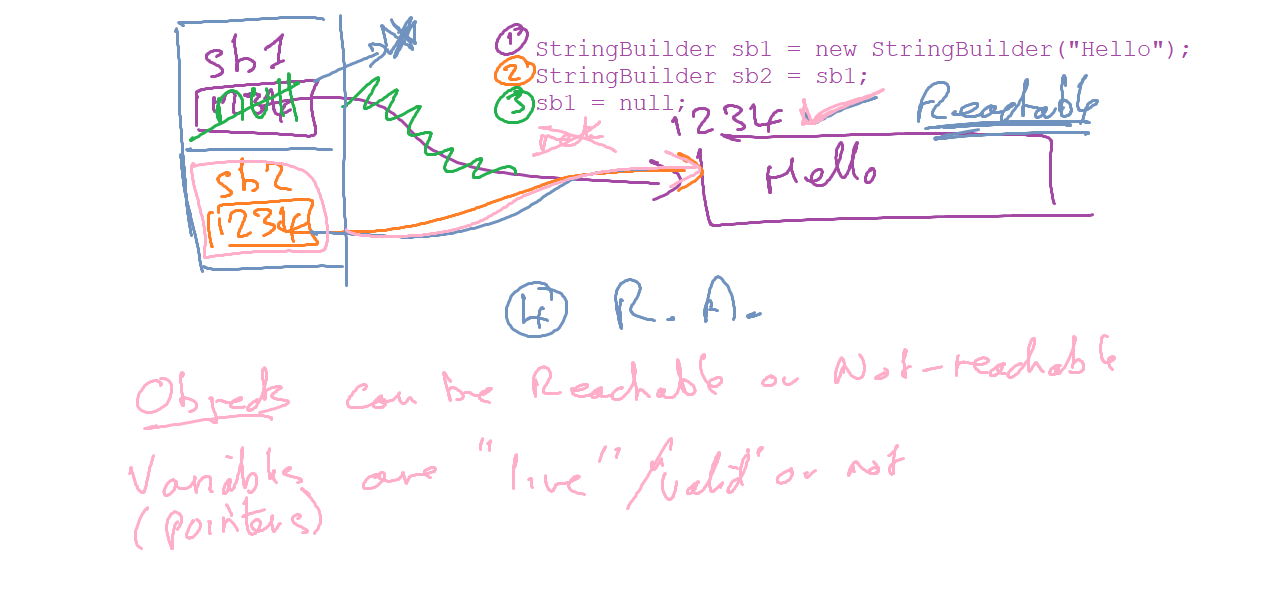 sb1
null
sb2
1234
1 StringBuilder sb1 = new StringBuilder("Hello");
2 StringBuilder sb2 = sb1;
3 sb1 = null;
1234
Reachable
Hello
4 R. A.
Objects can be Reachable or Not-reachable
Variables are "live"/"valid" or not
(pointers)